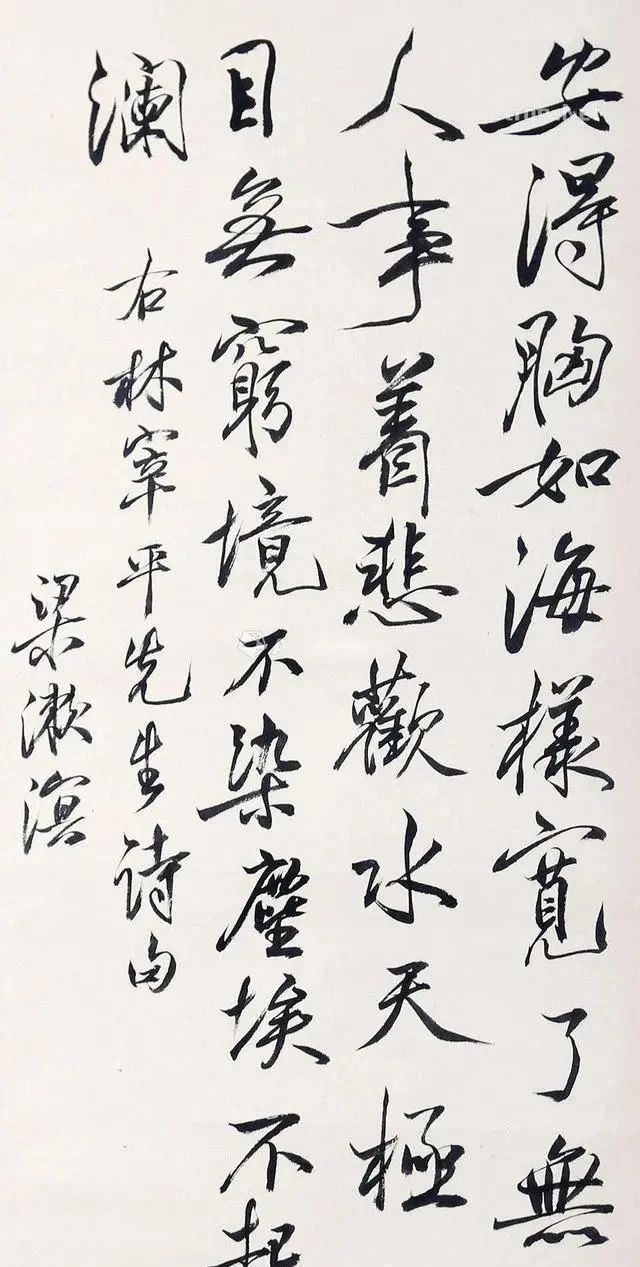 安得胸如海様寬了無
人事着悲歡水天極
目無窮境不染塵埃不起
澜
右林宰平先生诗句
梁漱溟